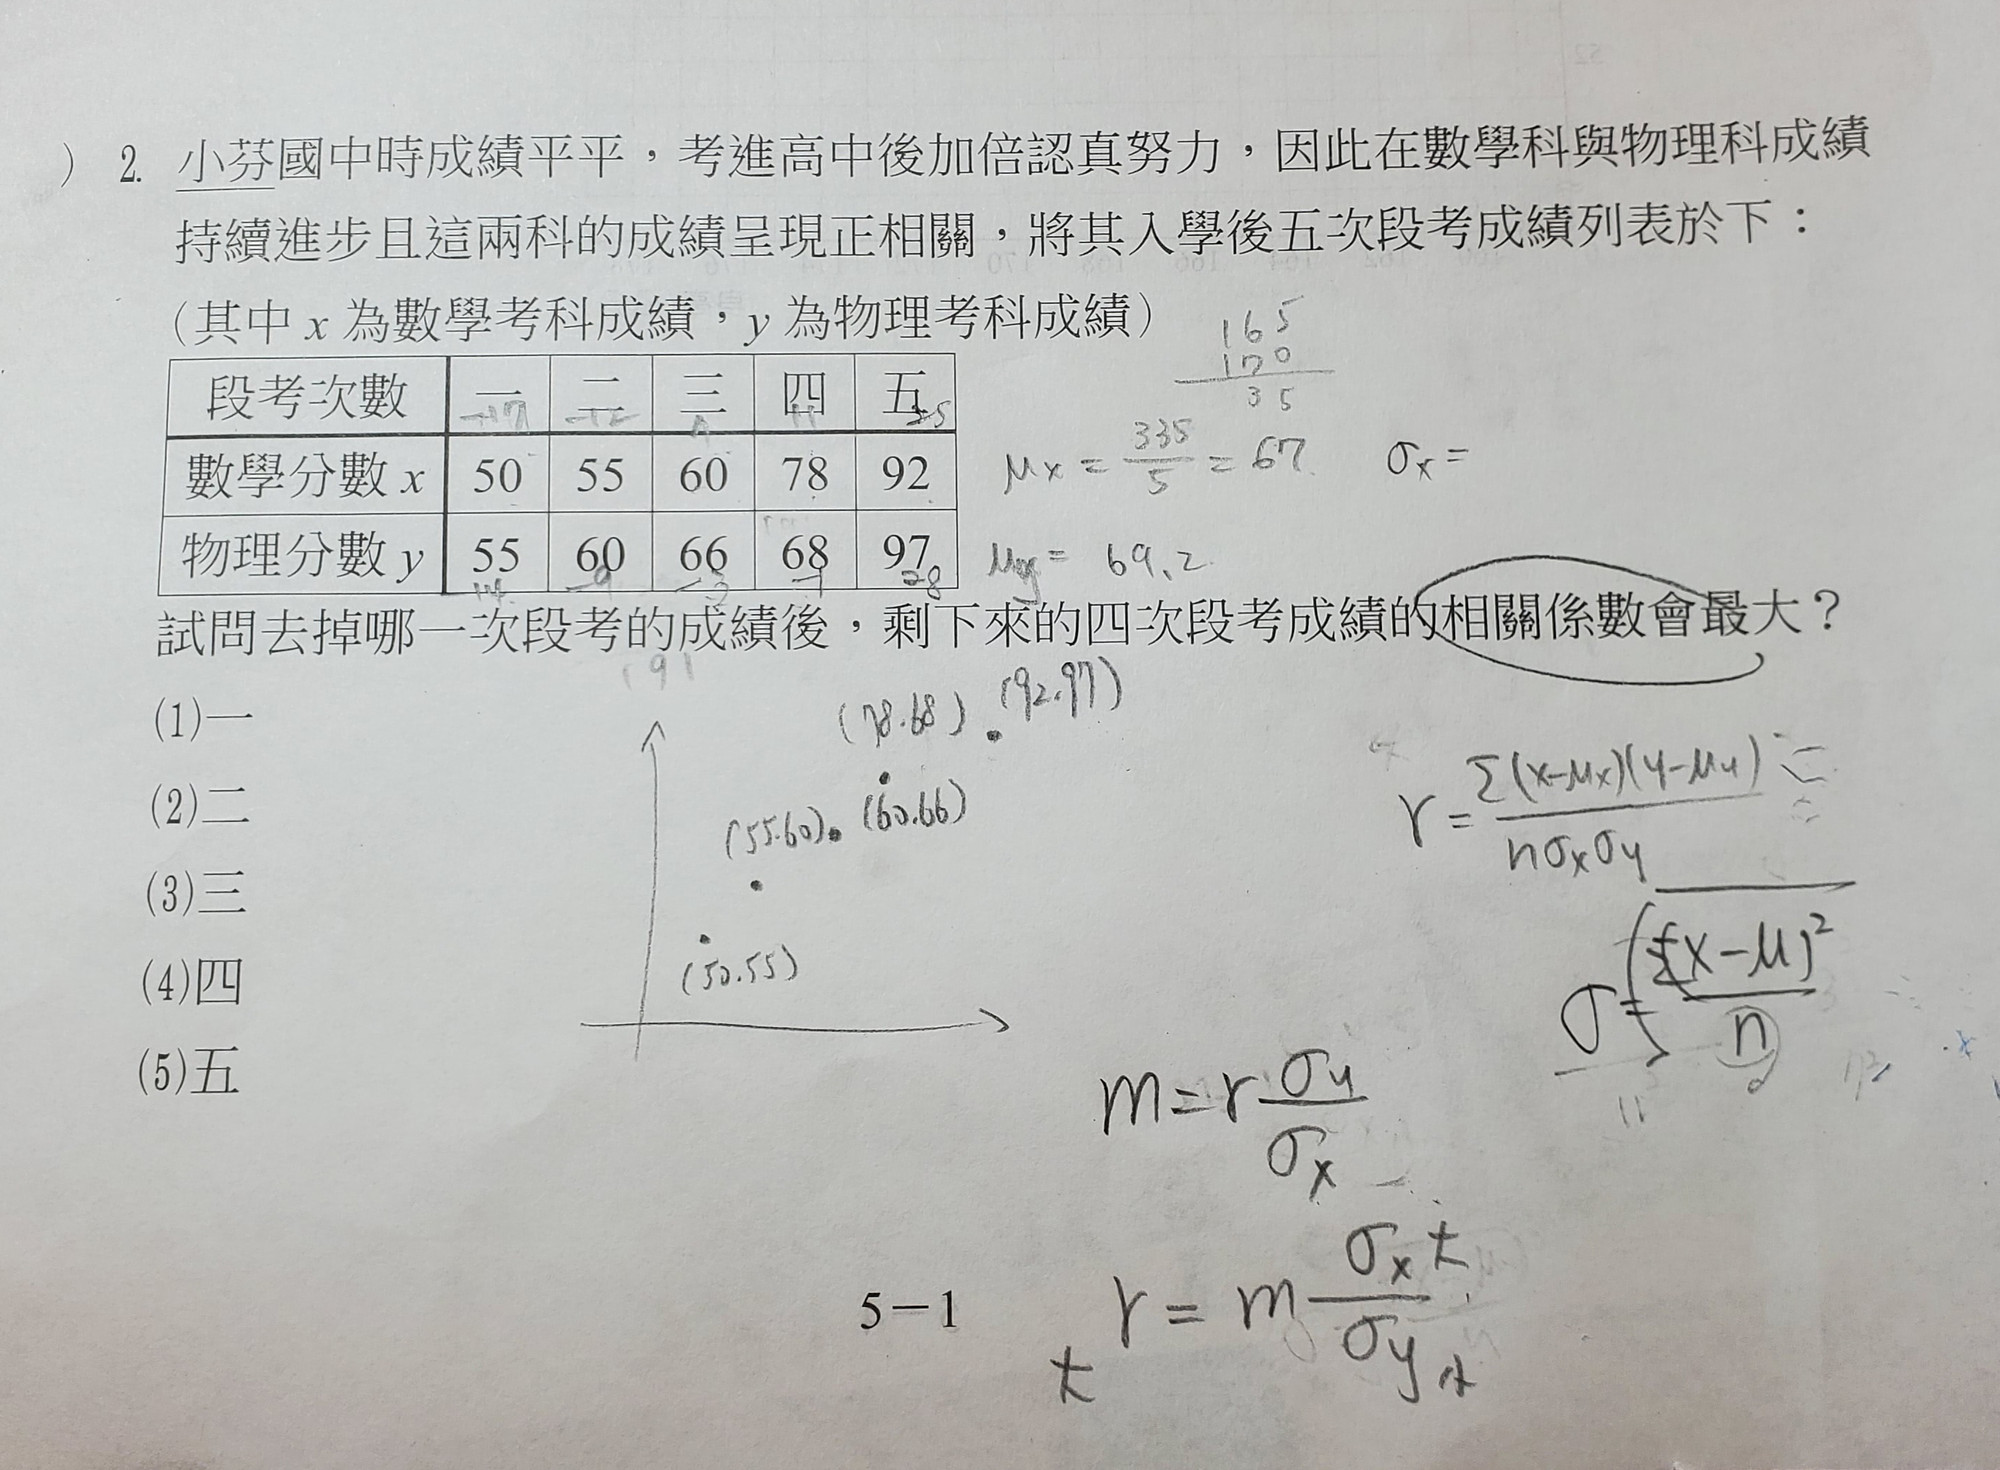 ) 2. 小芬國中時成績平平，考進高中後加倍認真努力，因此在數學科與物理科成績
持續進步且這兩科的成績呈現正相關，將其入學後五次段考成績列表於下：
(其中 x 為數學考科成績，y 為物理考科成績)
165
170
35
段考次數 一 二 三 四 五
-17 -12 11 25
數學分數 x 50 55 60 78 92
μx = 335/5 = 67 σx =
物理分數 y 55 60 66 68 97
μy = 69.2
-9 -3 -1 28
試問去掉哪一次段考的成績後，剩下來的四次段考成績的相關係數會最大？
(1)一
(2)二
(3)三
(4)四
(5)五
(78.68) (92.97)
(55.60) (60.66)
(50.55)
r = Σ(x-μx)(y-μy) / nσxσy
σ = Σ(x-μ)² / n
m = r σy/σx
r = m σx/σy
5－1